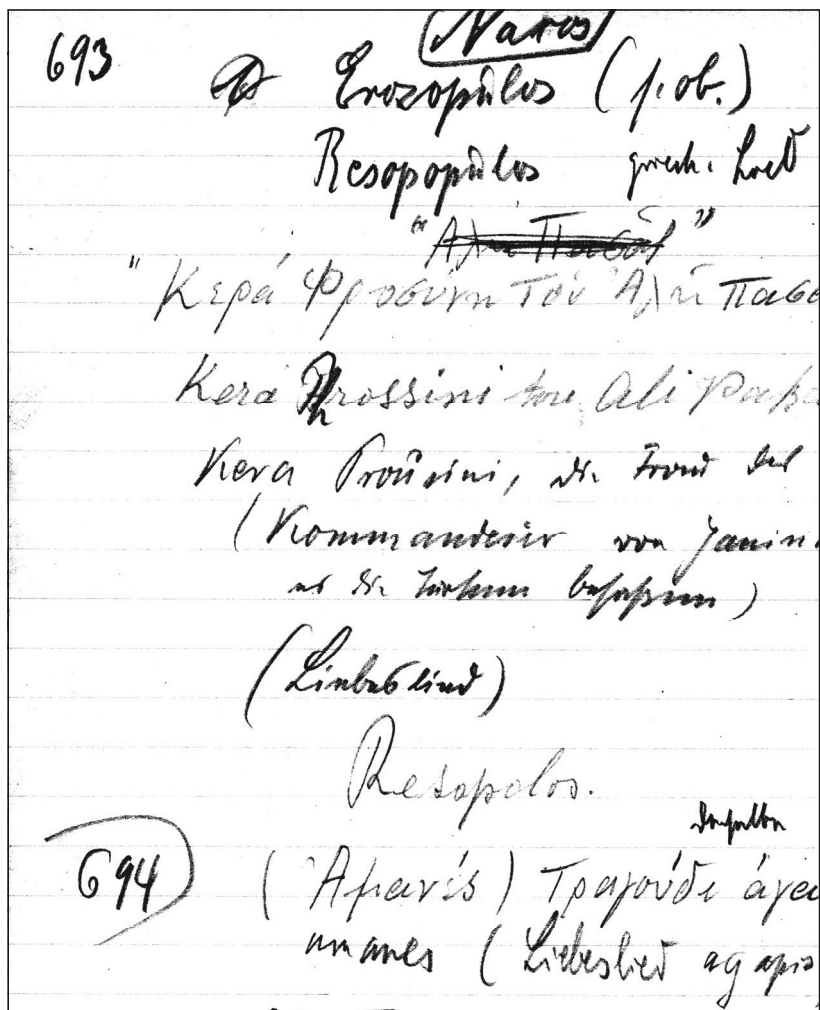 Naxos
693 Erozopulos (s. ob.)
Resopopulos griech. Lied
"Ἀλῆ Πασᾶ"
"Κερά Φροσύνη τοῦ Ἀλῆ πασα
Kerá Phrossini tou Ali Pascha
Kera Froũsini, die Freud des
(Kommandeur von Janin
als die Türken besaßen)
(Liebeslied)
Resopolos.
derselbe
694 (Ἀμανές) Τραγούδι ἀγα
amanes (Liebeslied agapis